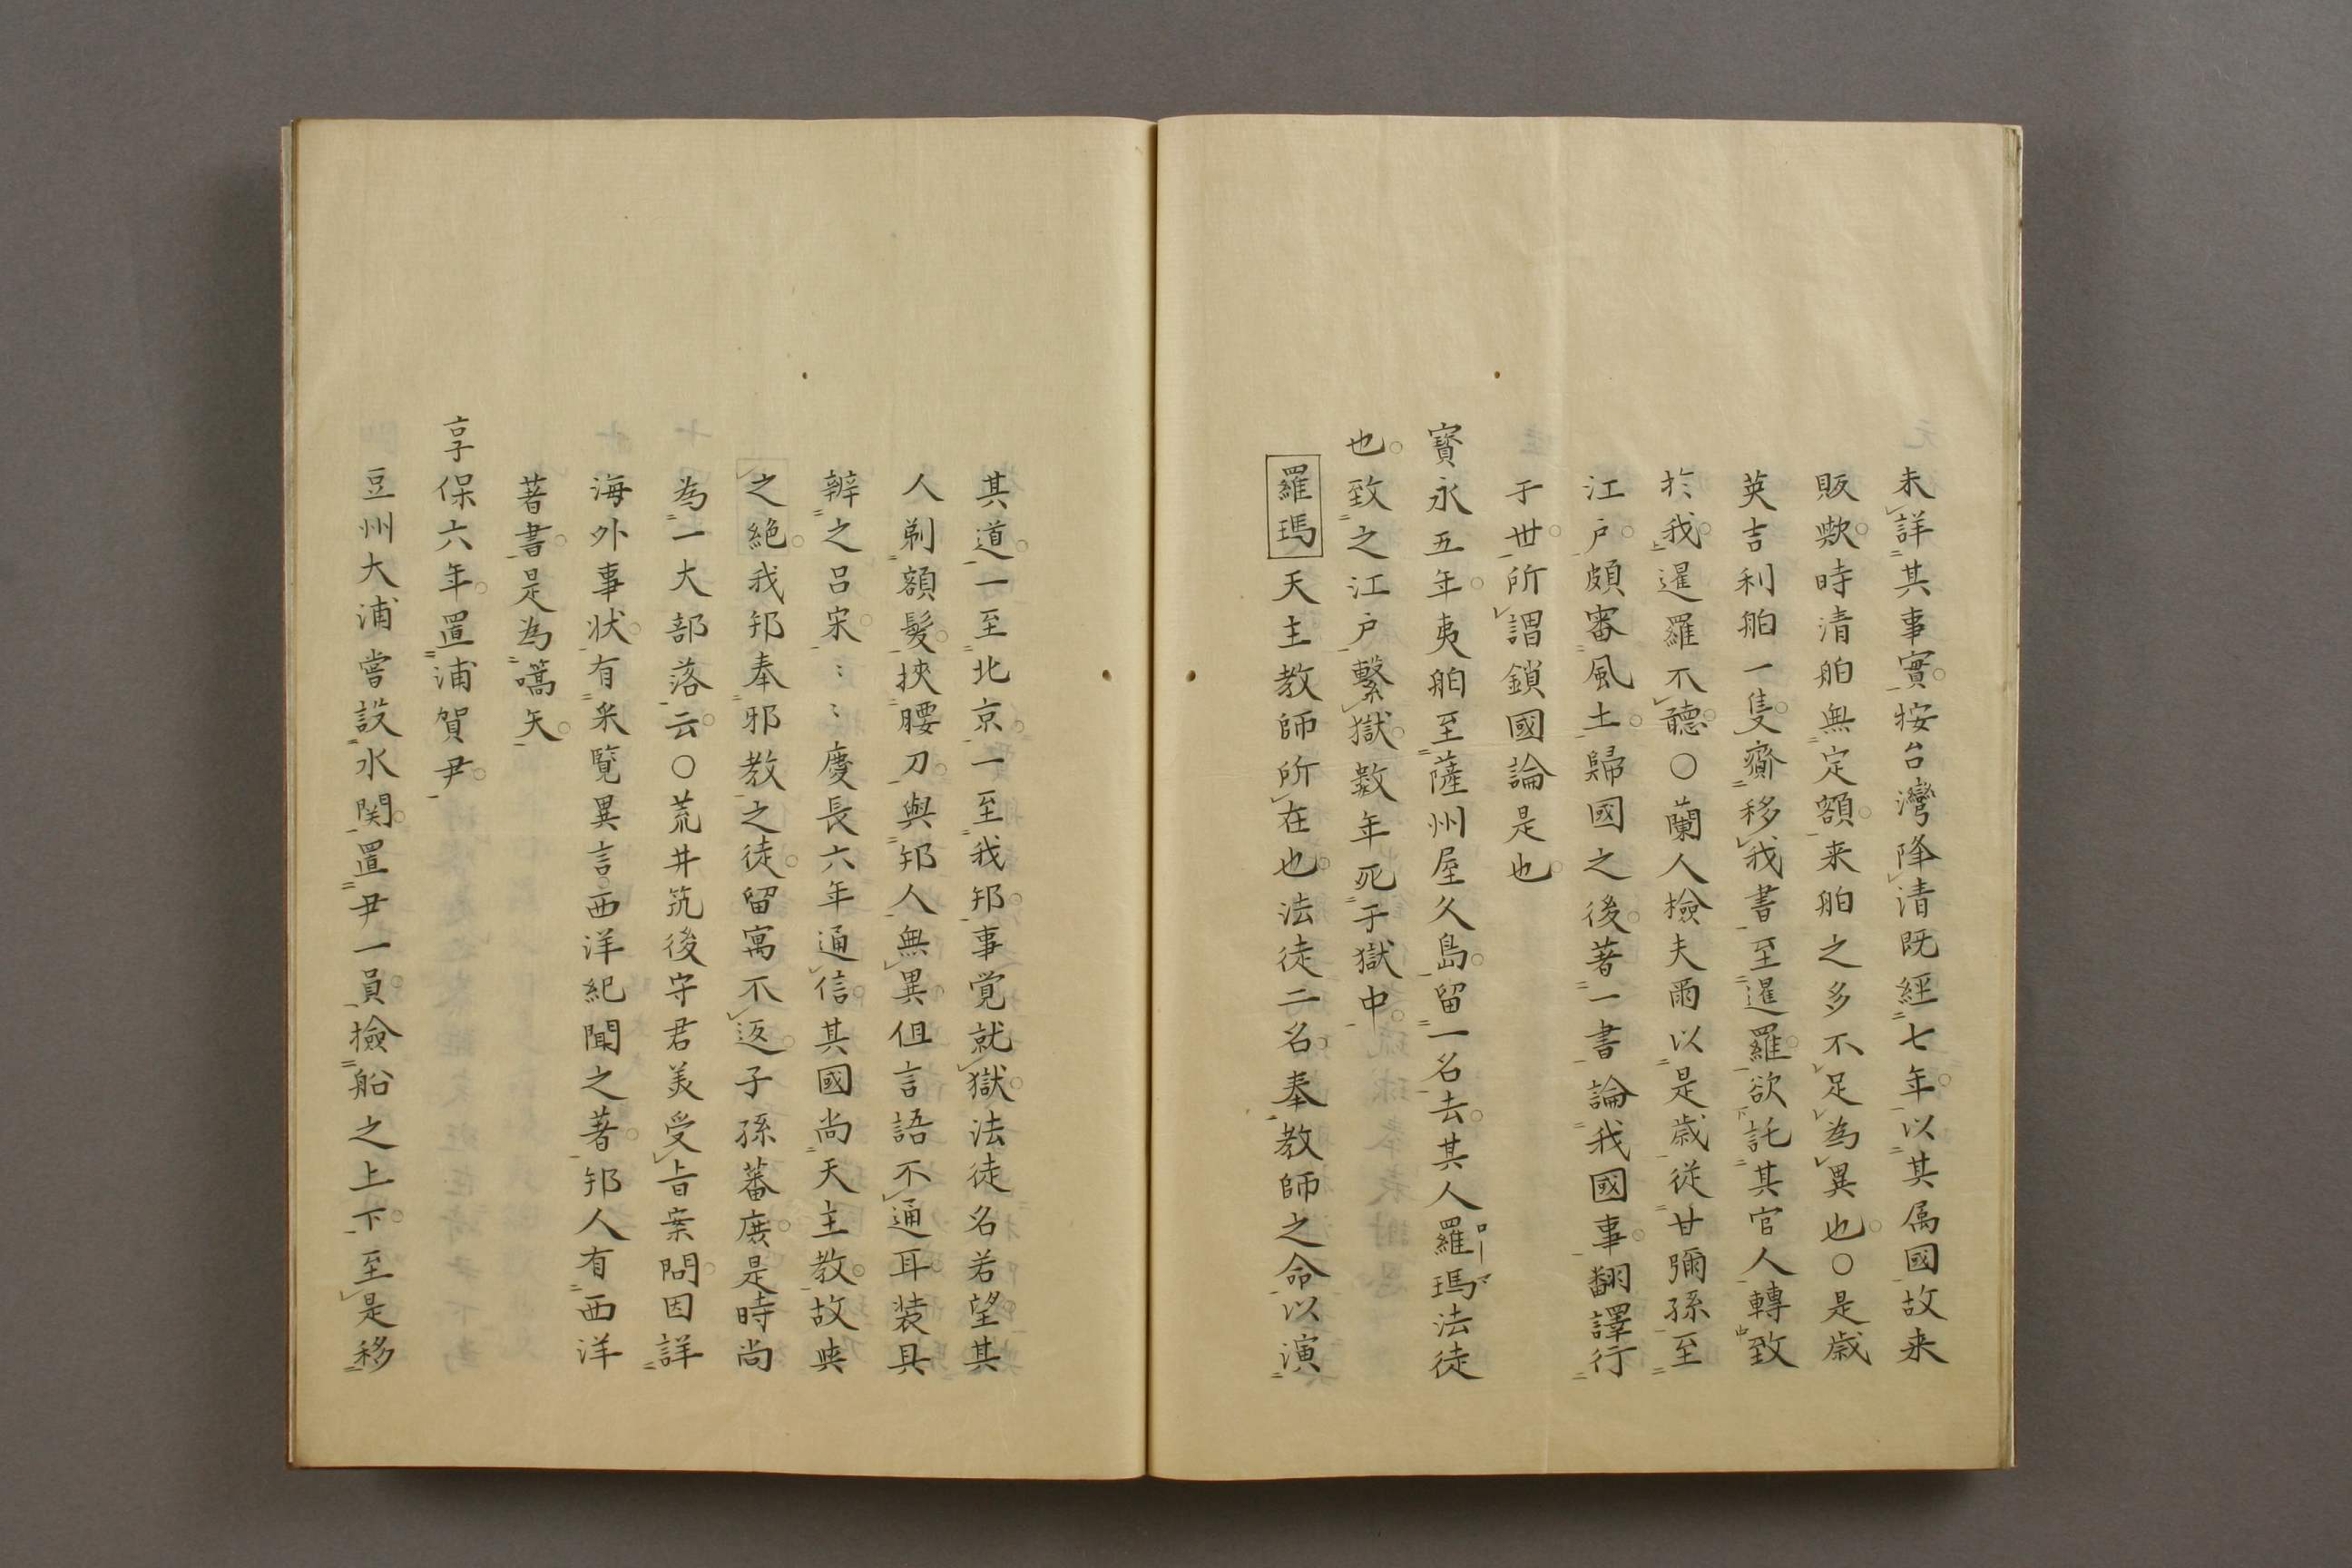 未詳其事實按台灣降清既經七年以其属國故来
販歟時清舶無定額来舶之多不足為異也○是歳
英吉利舶一隻齎移我書至暹羅欲託其官人轉致
於我暹羅不聴○蘭人撿夫爾以是歳従甘彌孫至
江戸頗審風土歸國之後著一書論我國事翻譯行
于世所謂鎖國論是也
寳永五年夷舶至薩州屋久島留一名去其人羅瑪法徒
也致之江戸繫獄数年死于獄中
羅瑪天主教師所在也法徒二名奉教師之命以演
其道一至北京一至我邦事覚就獄法徒名若望其
人剃額髪挾腰刀與邦人無異但言語不通耳装具
辨之呂宋〻〻慶長六年通信其國尚天主教故與
之絶我邦奉邪教之徒留寓不返子孫蕃庶是時尚
為一大部落云○荒井筑後守君美受旨案問因詳
海外事状有采覧異言西洋紀聞之著邦人有西洋
著書是為嚆矢
享保六年置浦賀尹
豆州大浦嘗設水関置尹一員撿船之上下至是移